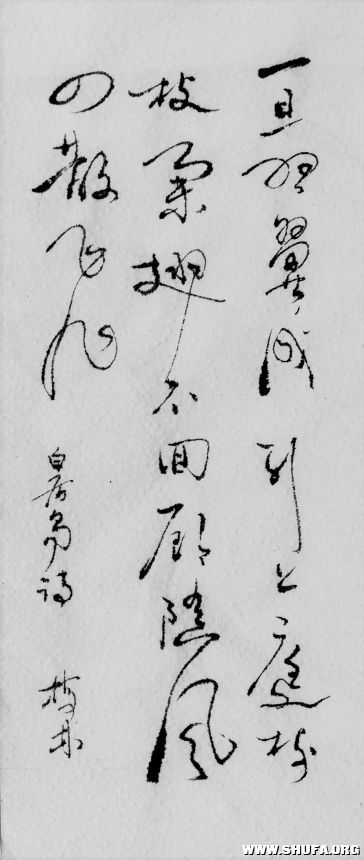 一旦羽翼成引上庭树
枝举翅不回顾随风
四散飞
白居易诗
WWW.SHUFA.ORG